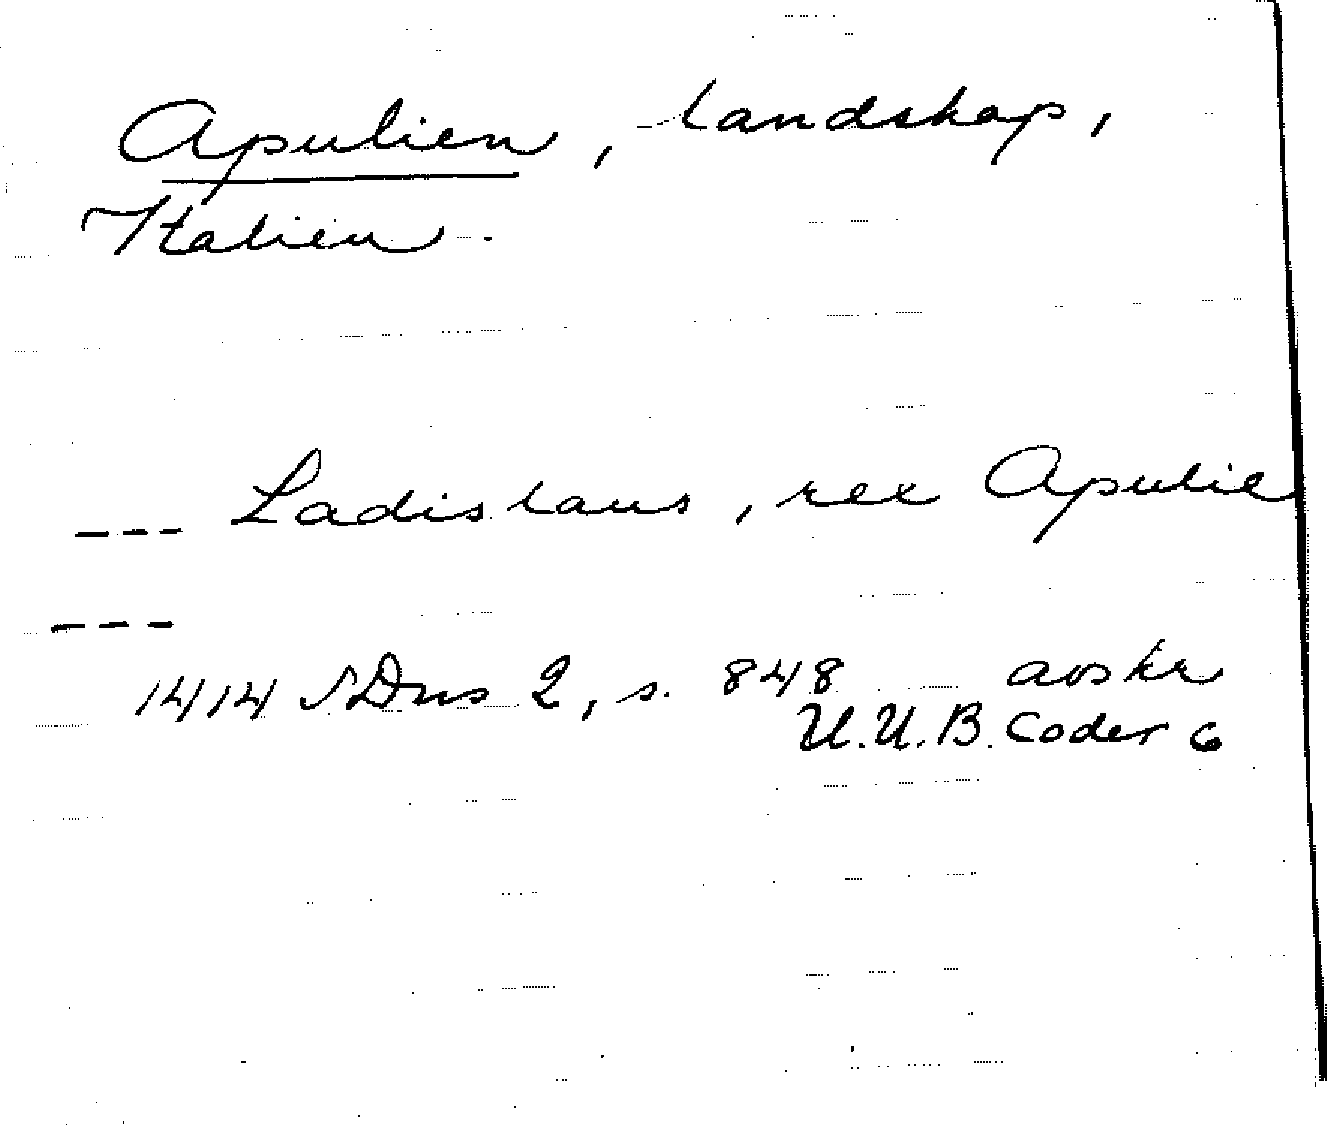 Apulien, landskap,
Italien.
--- Ladislaus, rex Apulie
---
1414 SDns 2, s. 848 avskr
U.U.B. Codex 6